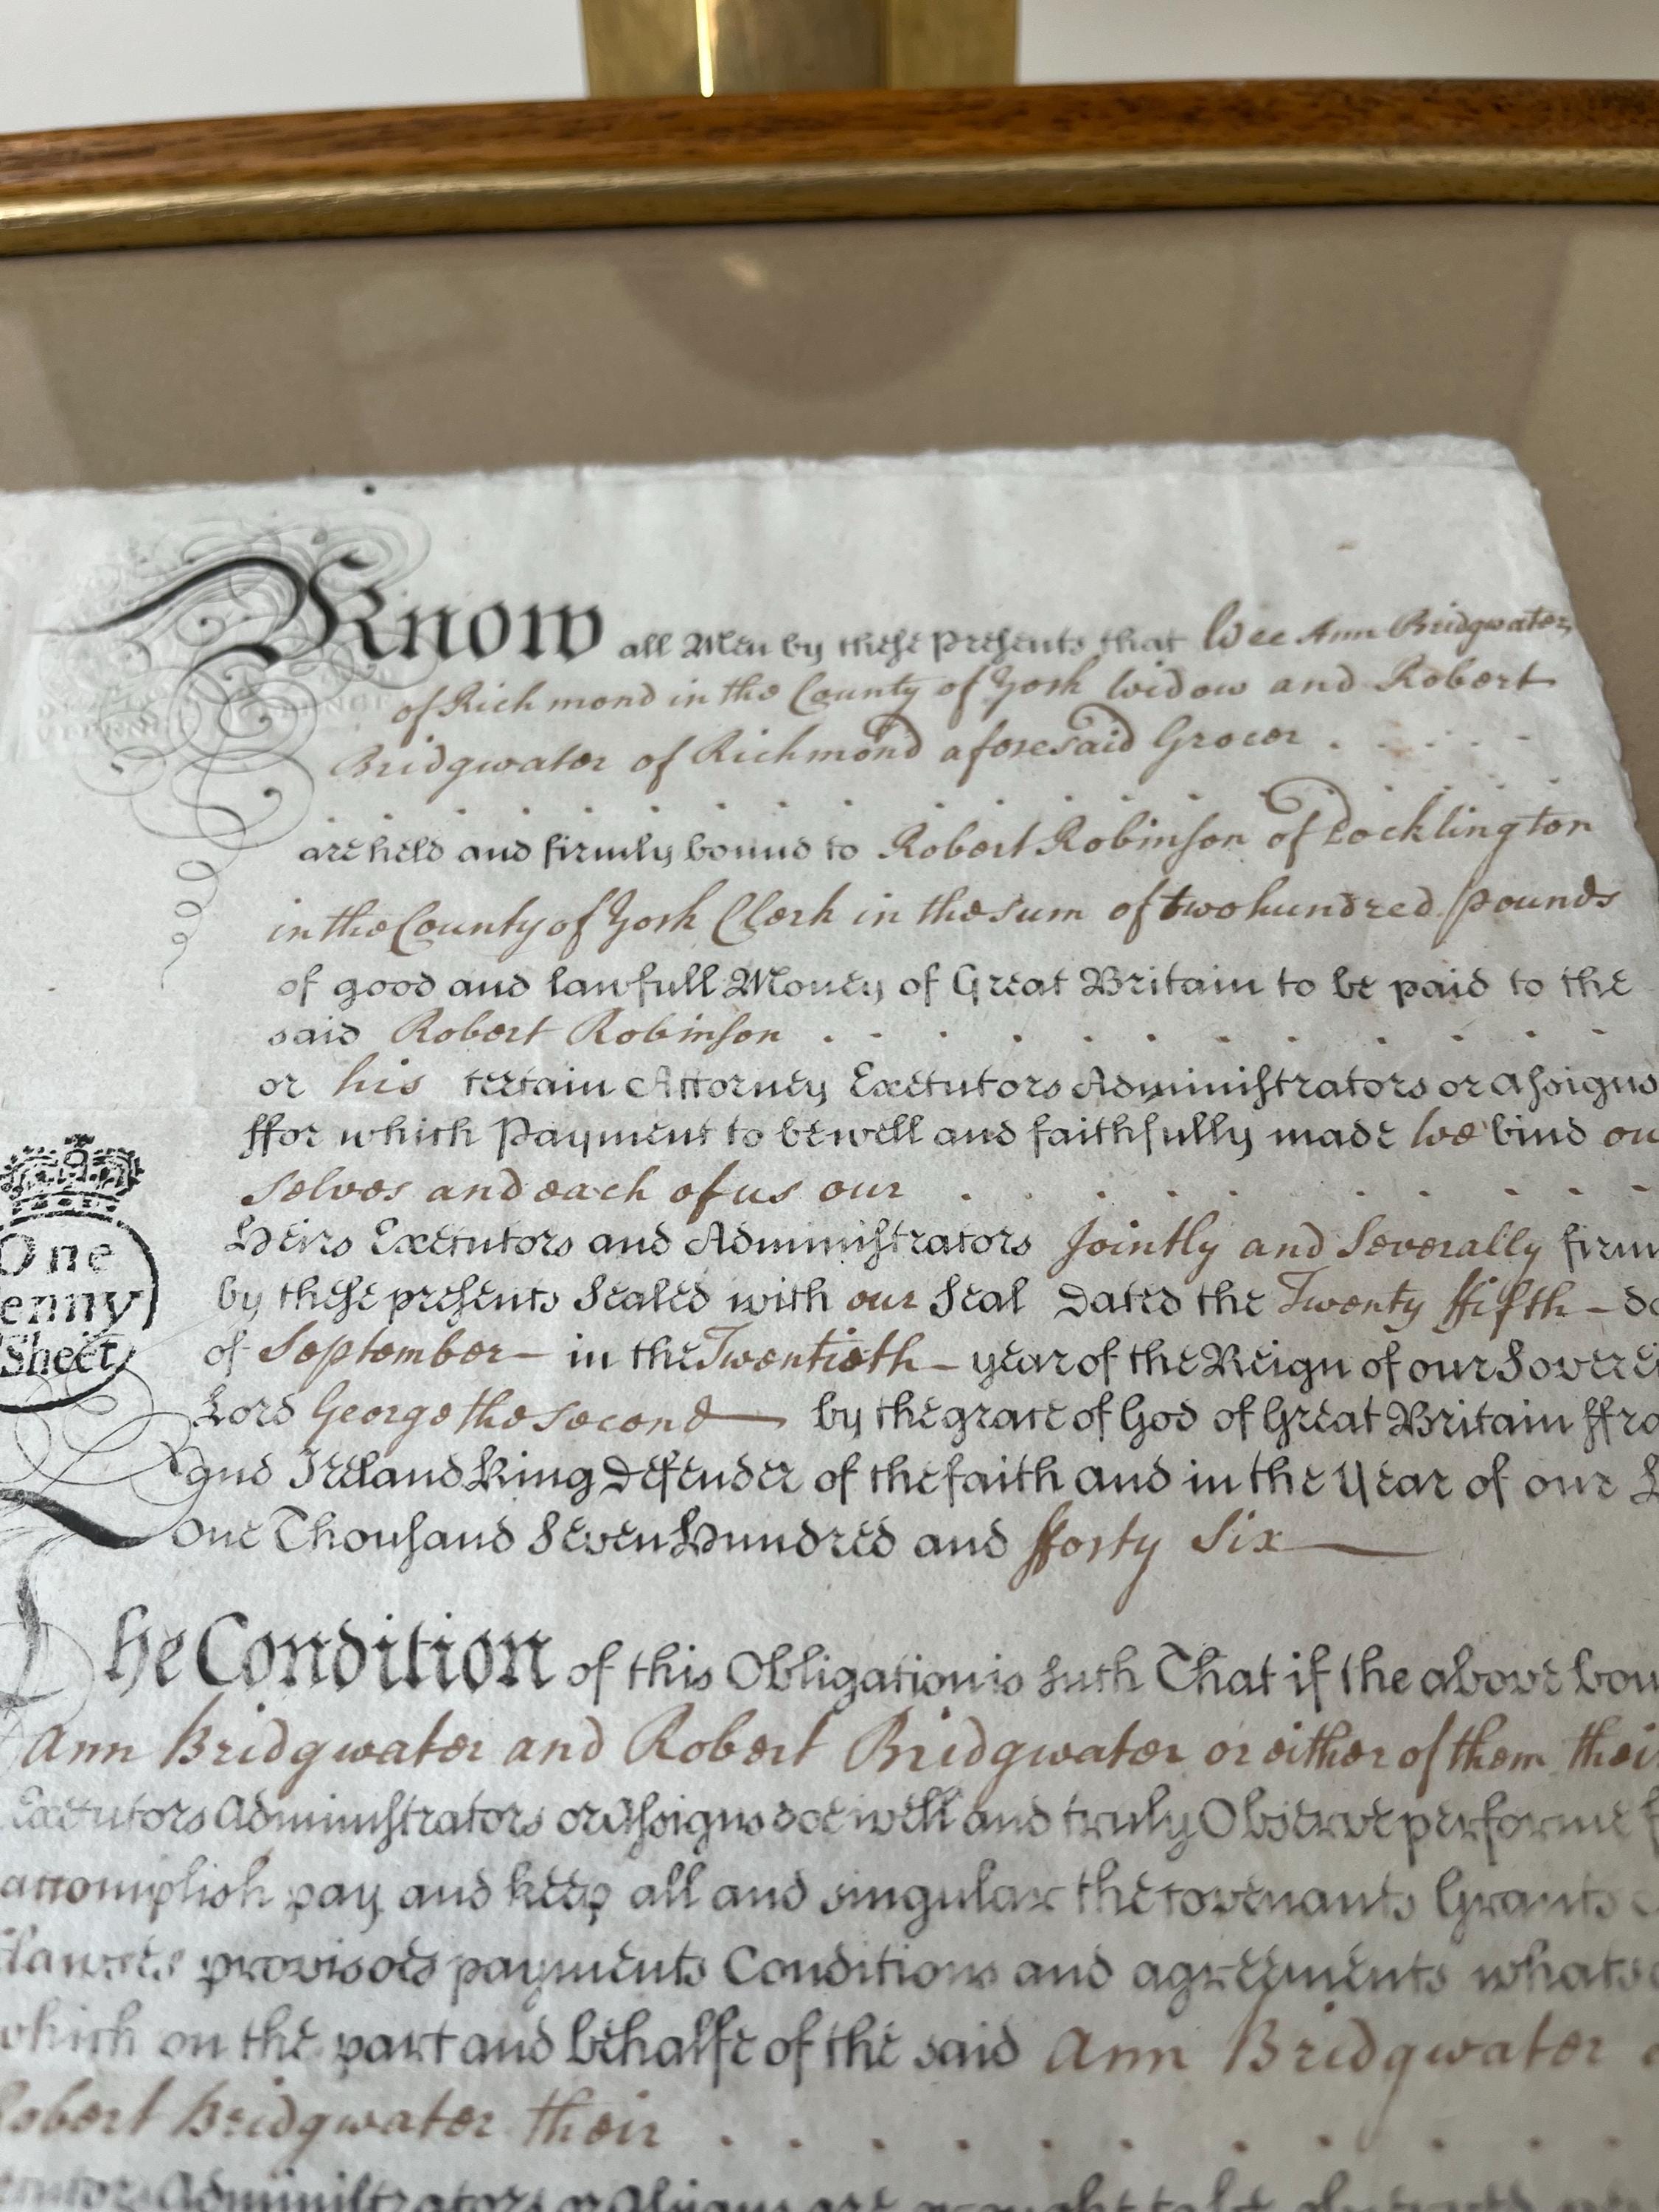 Know all Men by these Presents that Wee Ann Bridgwater
of Richmond in the County of York Widow and Robert
Bridgwater of Richmond aforesaid Grocer
are held and firmly bound to Robert Robinson of Pocklington
in the County of York Clerk in the sum of two hundred pounds
of good and lawfull Money of Great Britain to be paid to the
said Robert Robinson
or his certain Attorney Executors Administrators or Assigns
ffor which Payment to be well and faithfully made we bind ou
selves and each of us our
Heirs Executors and Administrators Jointly and Severally firm
by these presents Sealed with our Seal Dated the Twenty ffifth - da
of September - in the Twentieth - year of the Reign of our Soverei
Lord George the Second by the grace of God of Great Britain ffra
and Ireland King Defender of the faith and in the Year of our L
One Thousand Seven Hundred and fforty Six
One
enny
Sheet
The Condition of this Obligation is Such That if the above bou
Ann Bridgwater and Robert Bridgwater or either of them thei
Executors Administrators or Assigns doe well and truly Observe performe f
accomplish pay and keep all and singular the Covenants Grants
provisoes payments Conditions and agreements whats
which on the part and behalfe of the said Ann Bridgwater
Robert Bridgwater their
Administrators or Assigns are